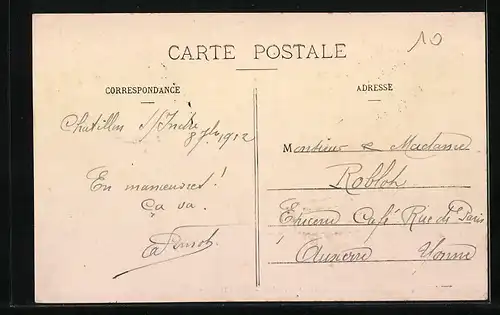 10
CARTE POSTALE
CORRESPONDANCE
ADRESSE
Chatillon s/Indre
8 7bre 1912
En manoeuvres!
Ça va.
Monsieur & Madame
Epicerie Café Rue de Paris
Auxerre Yonne